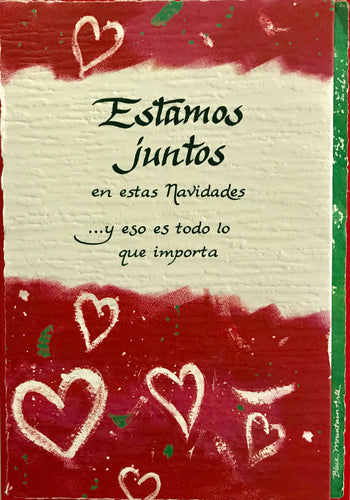 Estamos
juntos
en estas Navidades
...y eso es todo lo
que importa
Blue Mountain Arts